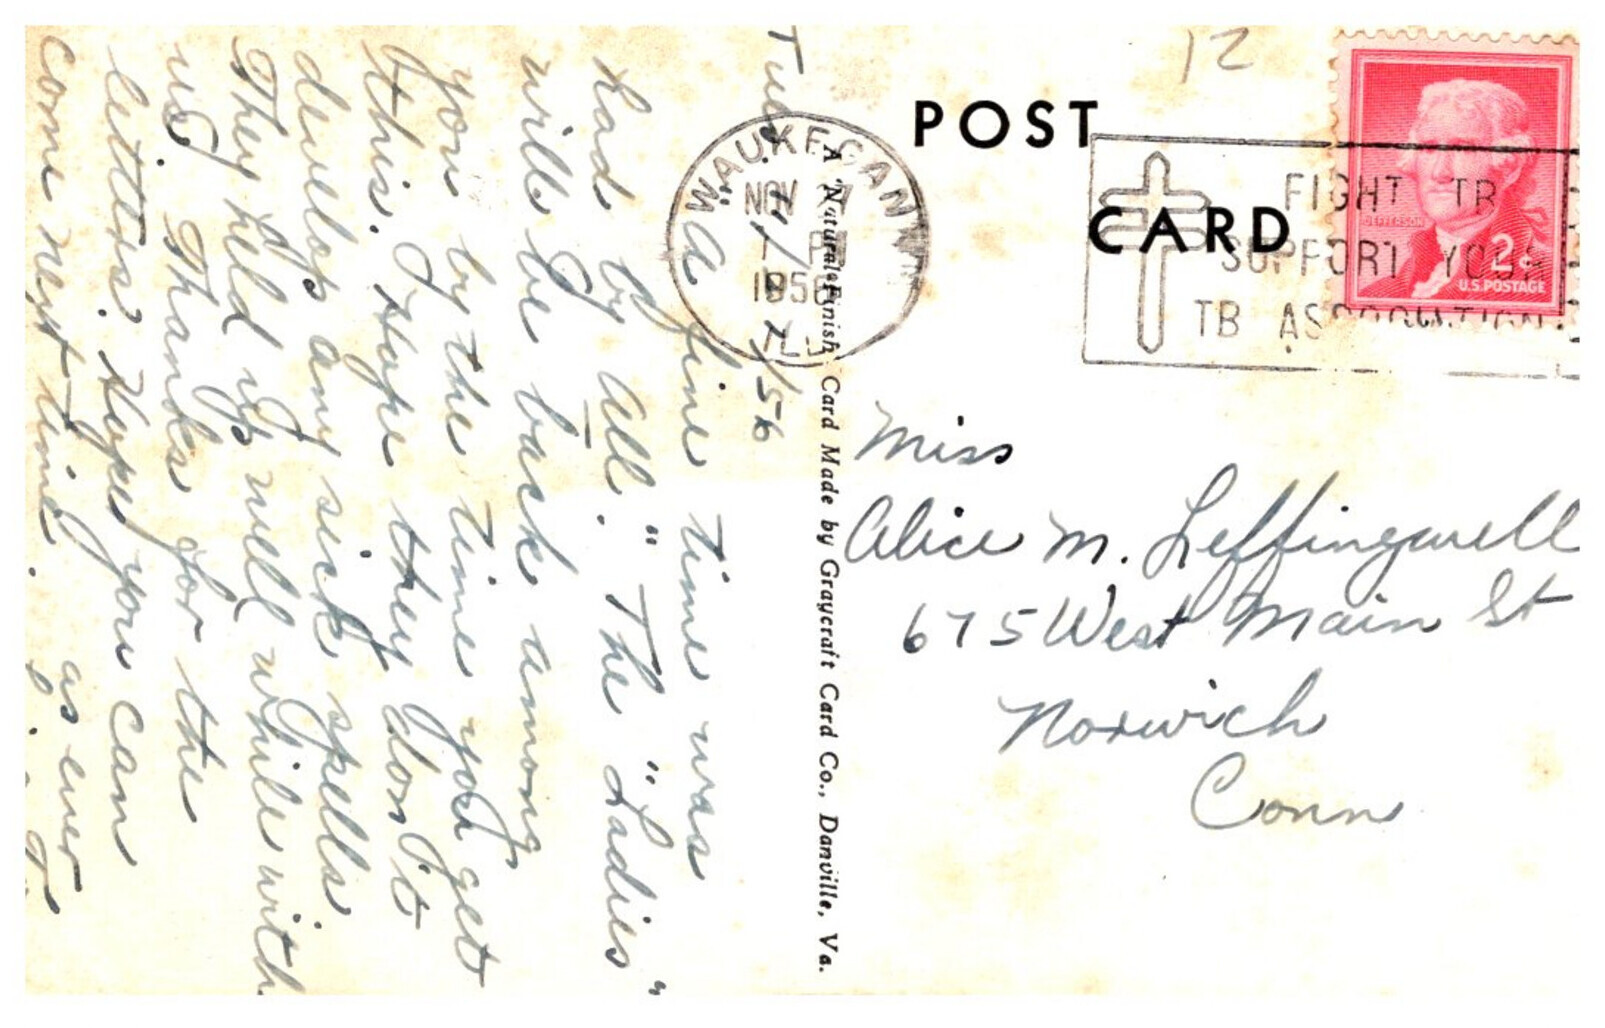 Tues. 11/7/56
"A fine time was
had by all." The "Ladies"
will be back among
you by the time you get
this. I hope they don't
develop any sick spells
They held up well while with
us. Thanks for the
letters. Hope you can
come next time.
as ever
12
POST
CARD
WAUKEGAN
NOV 7
1956
ILL
FIGHT TB
SUPPORT YOUR
TB ASSOCIATION
JEFFERSON
2¢
U.S. POSTAGE
A "Natural Finish" Card Made by Graycraft Card Co., Danville, Va.
Miss
Alice M. Leffingwell
675 West Main St
Norwich
Conn